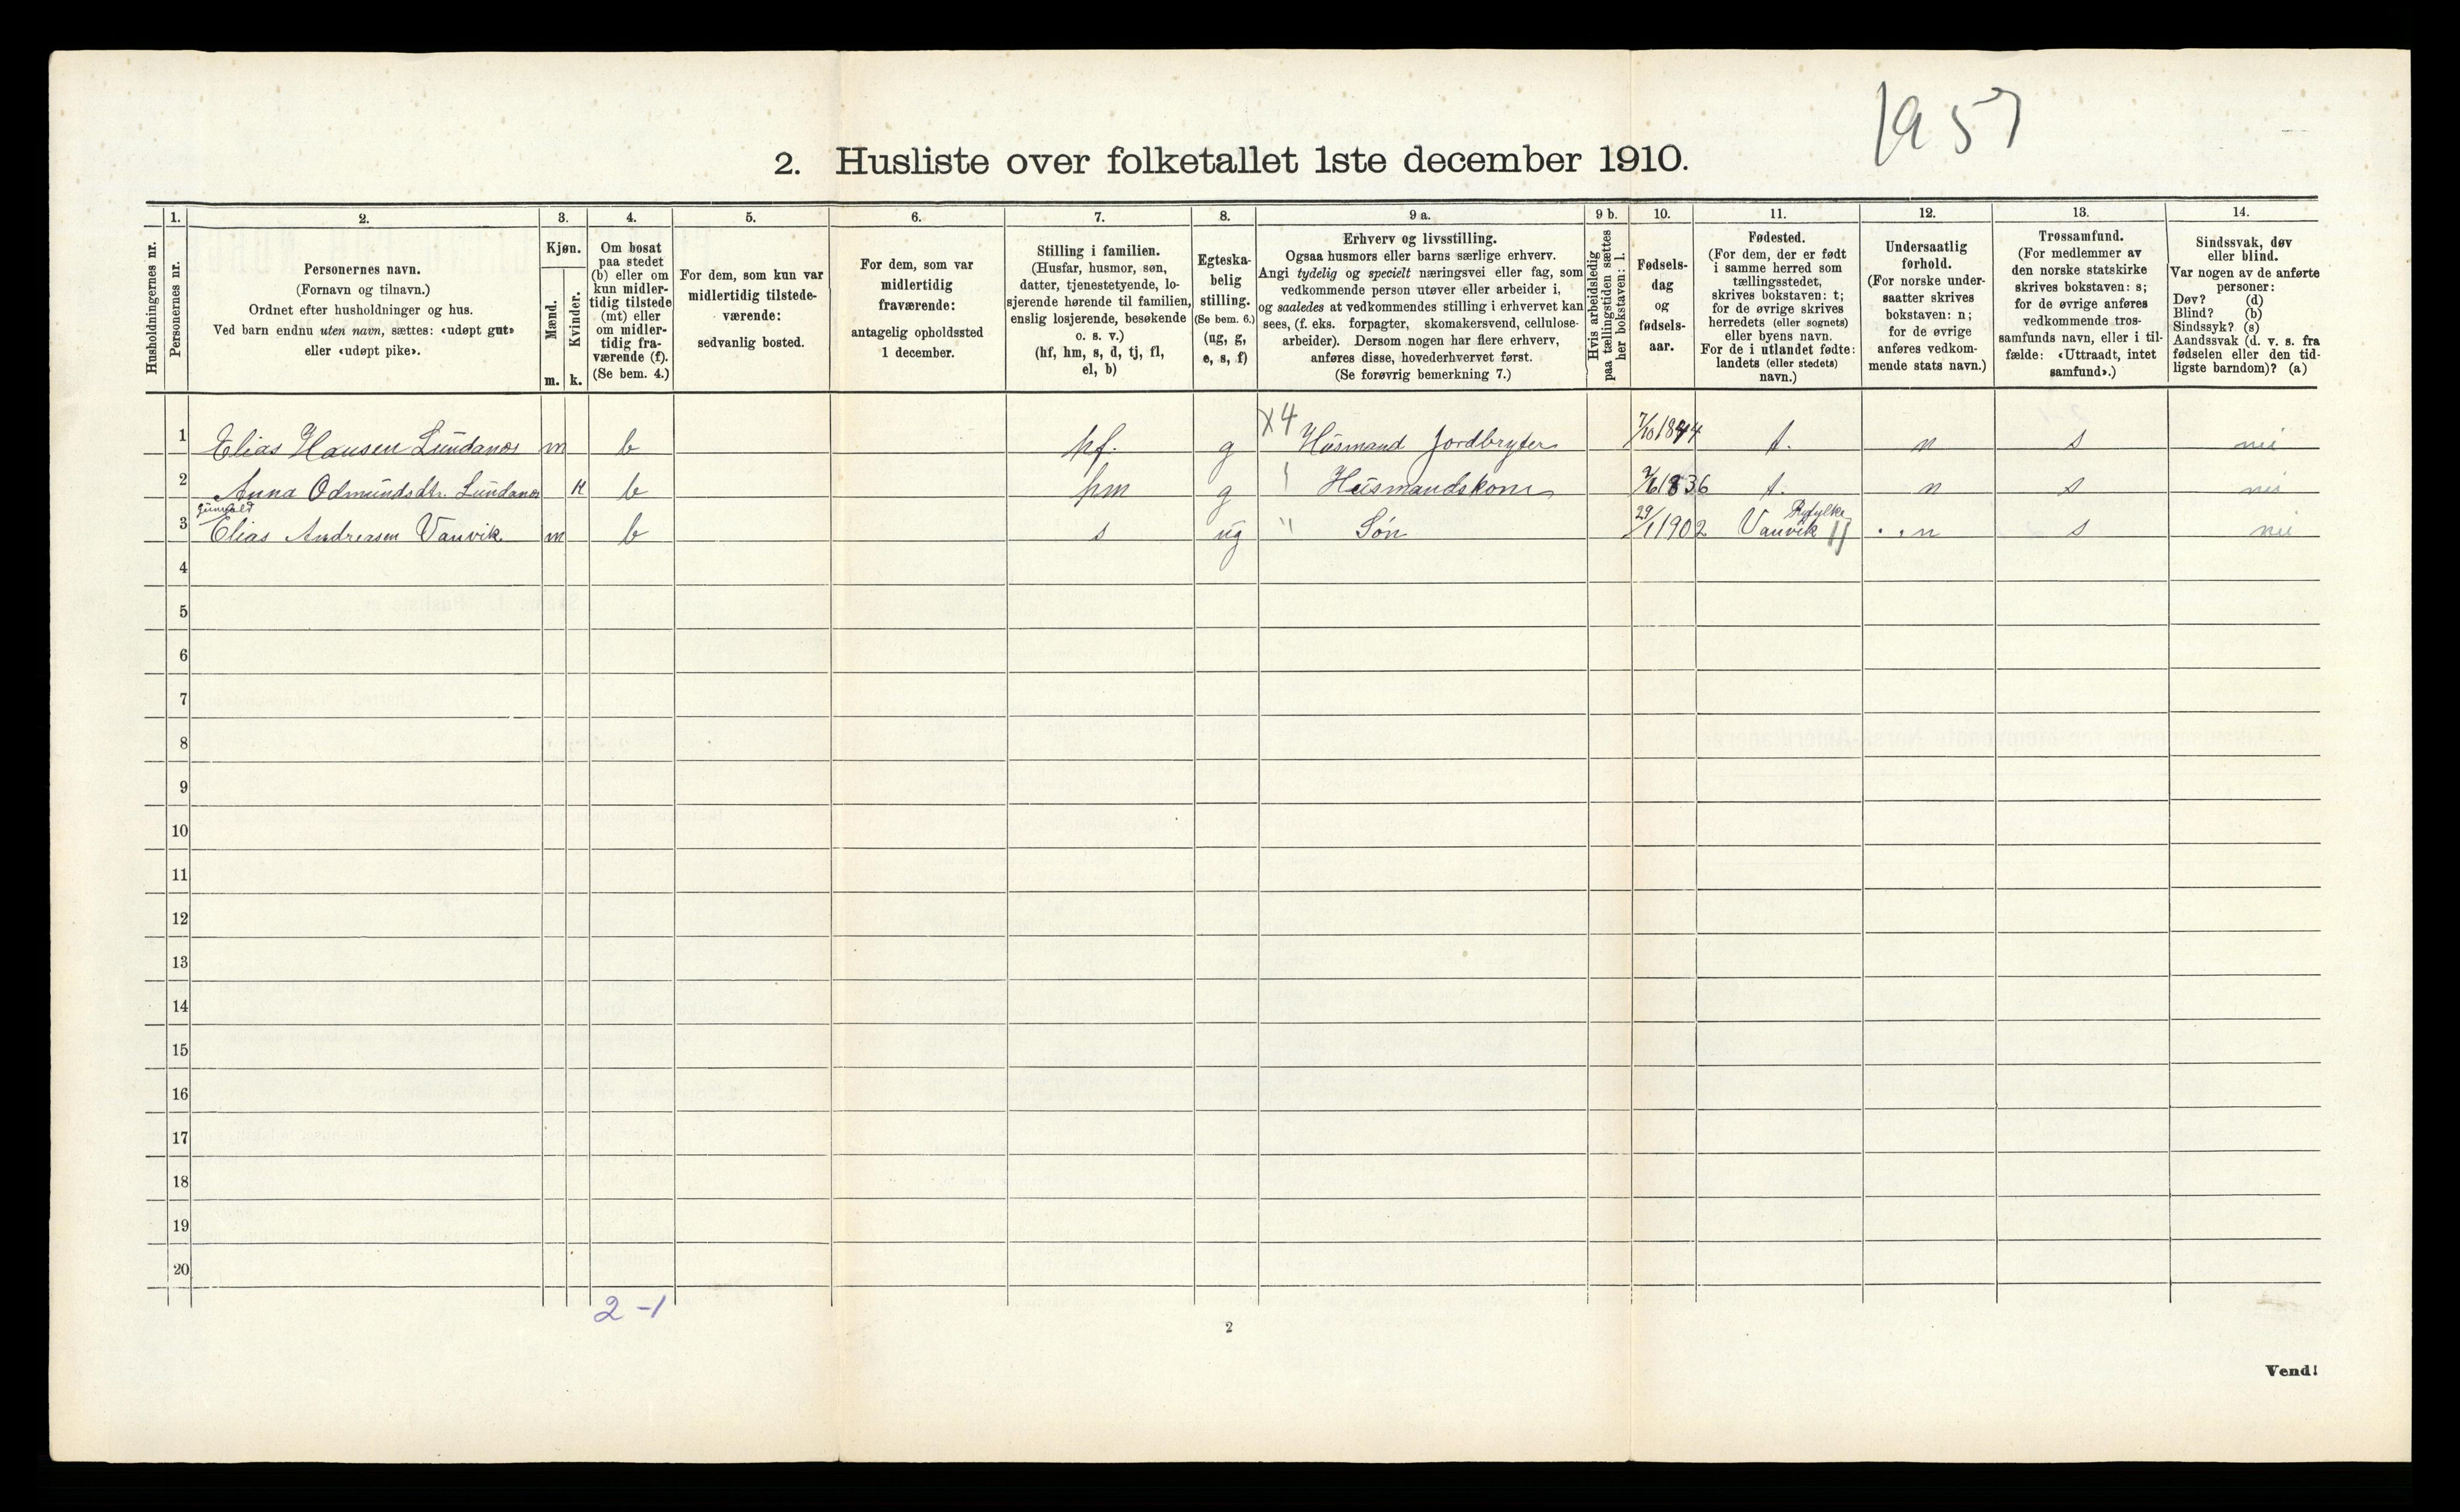 1957
2. Husliste over folketallet 1ste december 1910.
Husholdningernes nr.
1.
Personernes nr.
2.
Personernes navn.
(Fornavn og tilnavn.)
Ordnet efter husholdninger og hus.
Ved barn endnu uten navn, sættes: «udøpt gut»
eller «udøpt pike».
3.
Kjøn.
Mænd.
Kvinder.
m. k.
4.
Om bosat
paa stedet
(b) eller om
kun midler-
tidig tilstede
(mt) eller
om midler-
tidig fra-
værende (f).
(Se bem. 4.)
5.
For dem, som kun var
midlertidig tilstede-
værende:
sedvanlig bosted.
6.
For dem, som var
midlertidig
fraværende:
antagelig opholdssted
1 december.
7.
Stilling i familien.
(Husfar, husmor, søn,
datter, tjenestetyende, lo-
sjerende hørende til familien,
enslig losjerende, besøkende
o. s. v.)
(hf, hm, s, d, tj, fl,
el, b)
8.
Egteska-
belig
stilling.
(Se bem. 6.)
(ug, g,
e, s, f)
9 a.
Erhverv og livsstilling.
Ogsaa husmors eller barns særlige erhverv.
Angi tydelig og specielt næringsvei eller fag, som
vedkommende person utøver eller arbeider i,
og saaledes at vedkommendes stilling i erhvervet kan
sees, (f. eks. forpagter, skomakersvend, cellulose-
arbeider). Dersom nogen har flere erhverv,
anføres disse, hovederhvervet først.
(Se forøvrig bemerkning 7.)
9 b.
Hvis arbeidsledig
paa tællingstiden sættes
her bokstaven: l.
10.
Fødsels-
dag
og
fødsels-
aar.
11.
Fødested.
(For dem, der er født
i samme herred som
tællingsstedet,
skrives bokstaven: t;
for de øvrige skrives
herredets (eller sognets)
eller byens navn.
For de i utlandet fødte:
landets (eller stedets)
navn.)
12.
Undersaatlig
forhold.
(For norske under-
saatter skrives
bokstaven: n;
for de øvrige
anføres vedkom-
mende stats navn.)
13.
Trossamfund.
(For medlemmer av
den norske statskirke
skrives bokstaven: s;
for de øvrige anføres
vedkommende tros-
samfunds navn, eller i til-
fælde: «Uttraadt, intet
samfund».)
14.
Sindssvak, døv
eller blind.
Var nogen av de anførte
personer:
Døv? (d)
Blind? (b)
Sindssyk? (s)
Aandssvak (d. v. s. fra
fødselen eller den tid-
ligste barndom)? (a)
X4
1 Elias Hansen Lundanes m b hf. g Husmand Jordbryter 7/10 1844 t. n s nei
2 Anna Odmundsdtr. Lundanes K b hm g Husmandskone 1836 t. n s nei
Gunvald Ryfylke
3 Elias Andreasen Vanvik m b s ug " Søn 29/1 1902 Vanvik n s nei
4
5
6
7
8
9
10
11
12
13
14
15
16
17
18
19
20
2-1
2
Vend!